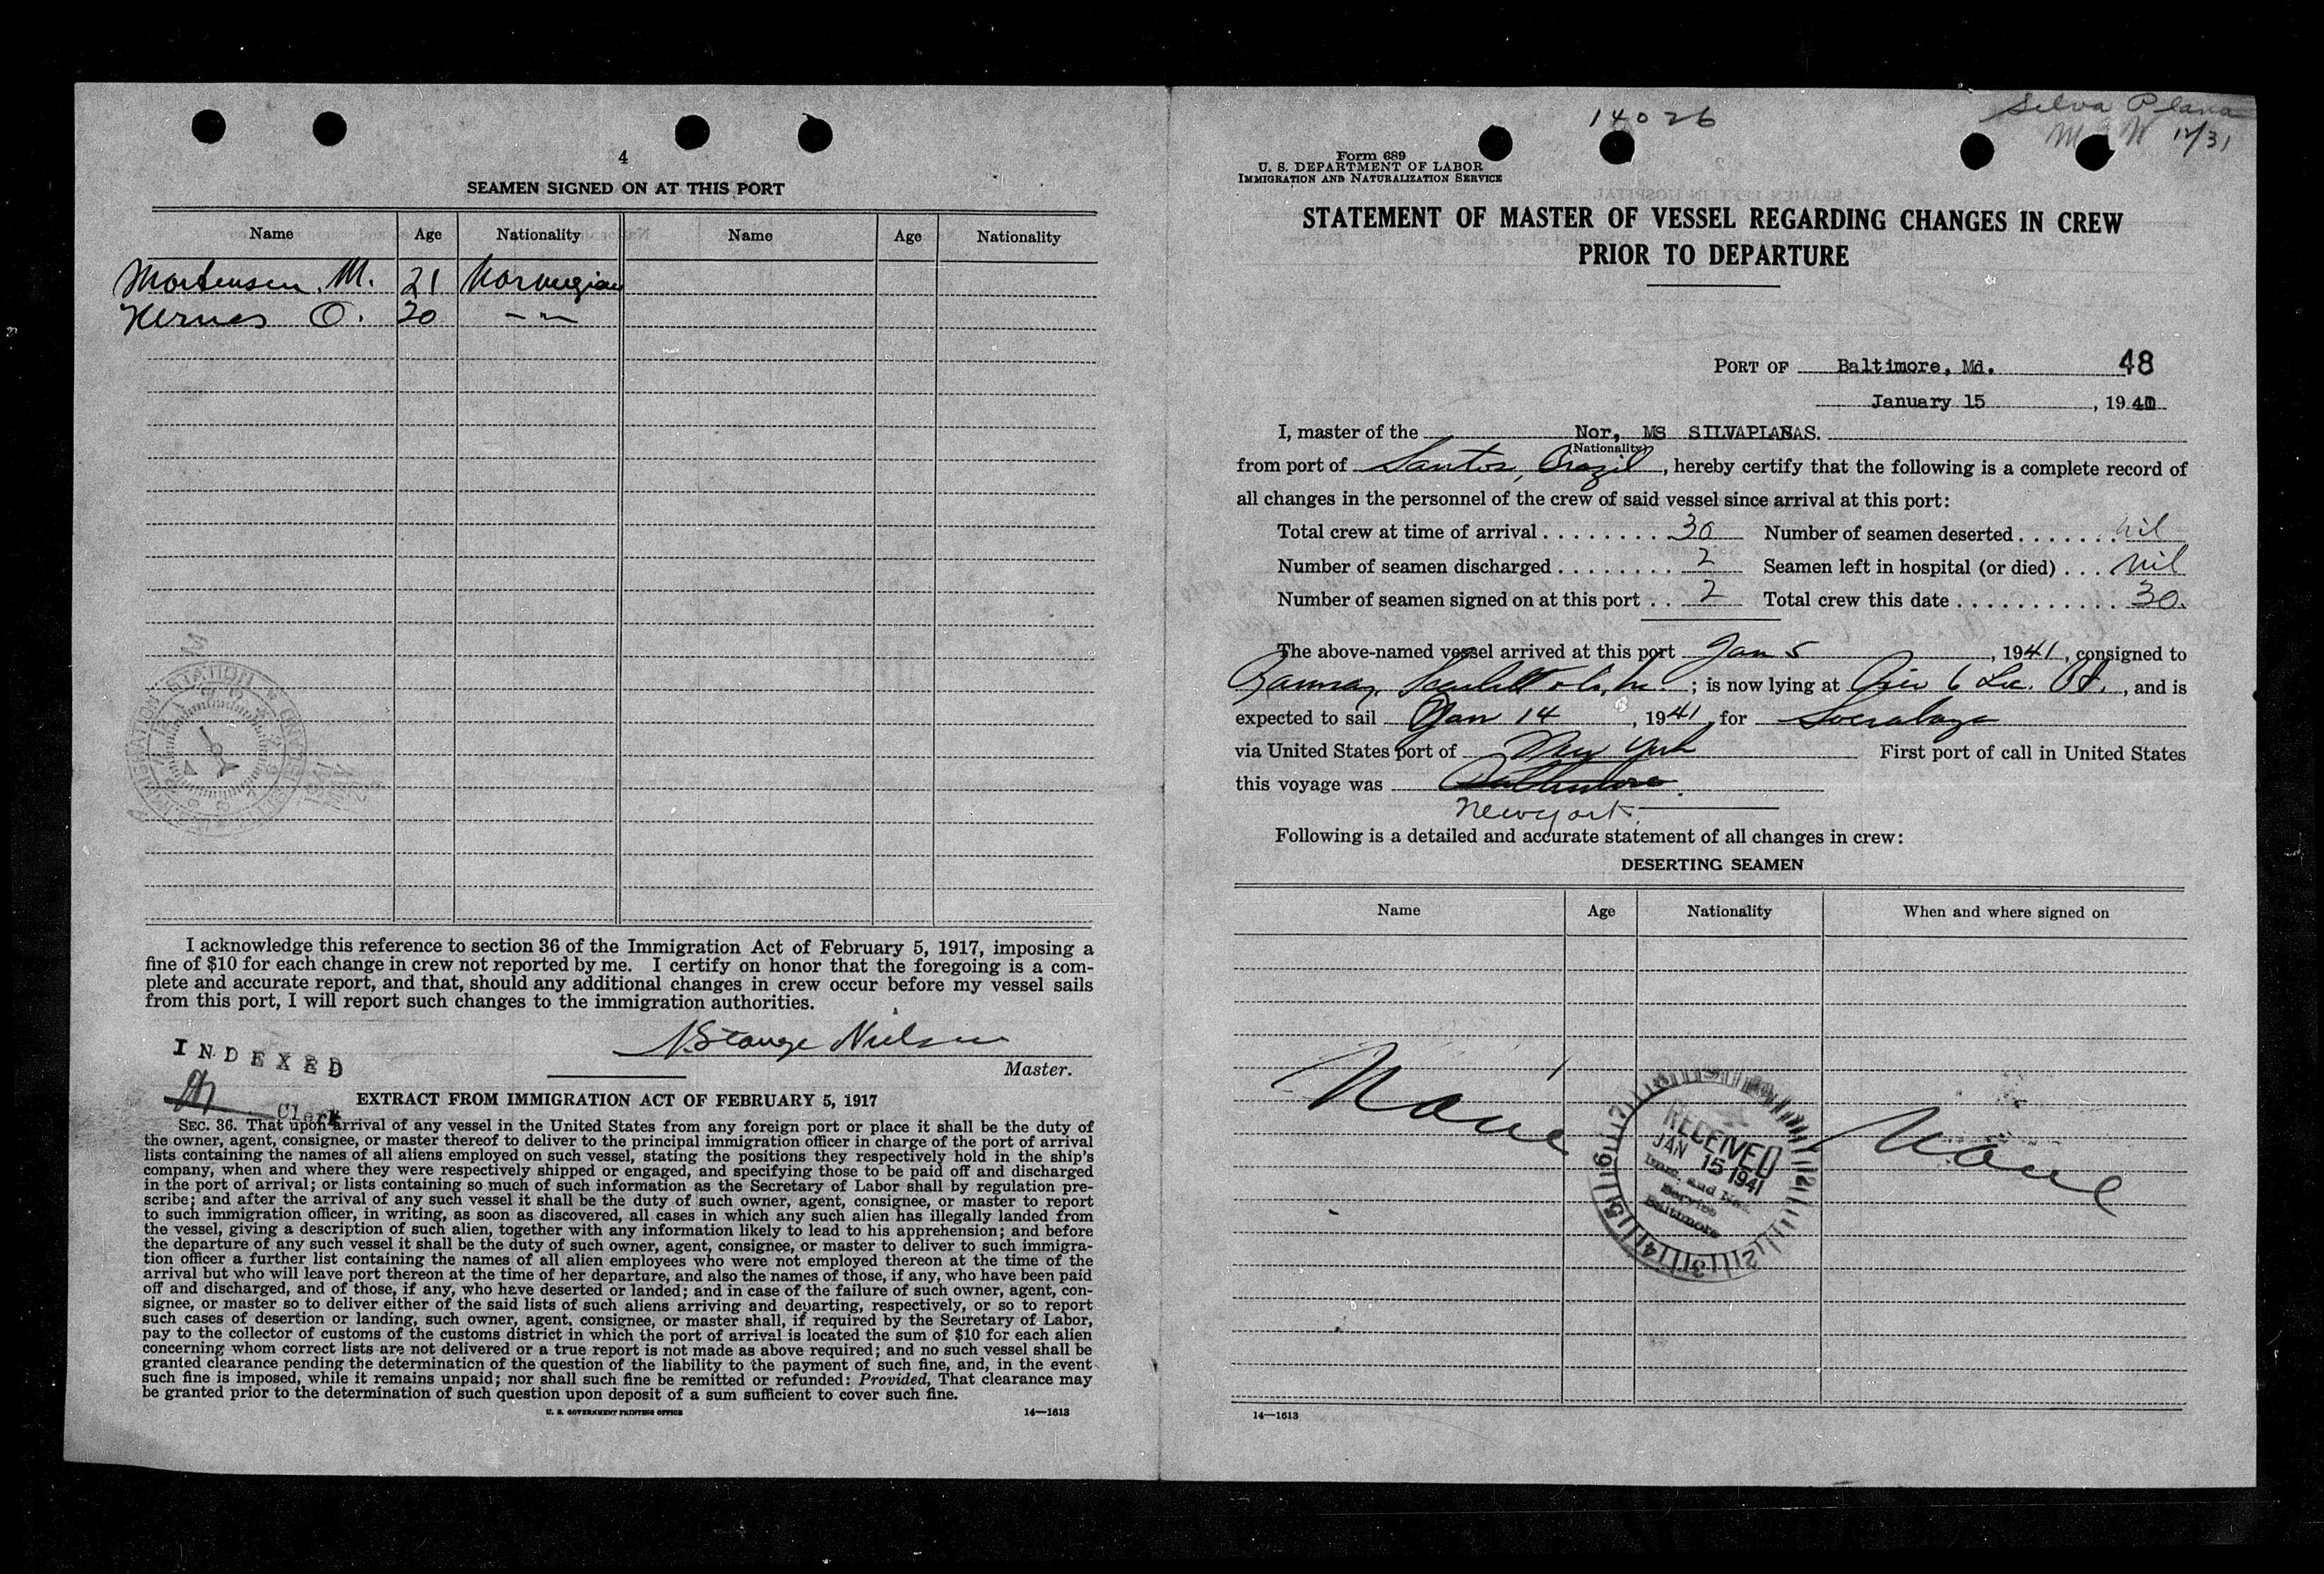 4
SEAMEN SIGNED ON AT THIS PORT
Name Age Nationality Name Age Nationality
Mortensen, M. 21 Norwegian
O. 20 -"-
I acknowledge this reference to section 36 of the Immigration Act of February 5, 1917, imposing a
fine of $10 for each change in crew not reported by me. I certify on honor that the foregoing is a com-
plete and accurate report, and that, should any additional changes in crew occur before my vessel sails
from this port, I will report such changes to the immigration authorities.
Nielsen
Master.
INDEXED
Clerk
EXTRACT FROM IMMIGRATION ACT OF FEBRUARY 5, 1917
SEC. 36. That upon arrival of any vessel in the United States from any foreign port or place it shall be the duty of
the owner, agent, consignee, or master thereof to deliver to the principal immigration officer in charge of the port of arrival
lists containing the names of all aliens employed on such vessel, stating the positions they respectively hold in the ship's
company, when and where they were respectively shipped or engaged, and specifying those to be paid off and discharged
in the port of arrival; or lists containing so much of such information as the Secretary of Labor shall by regulation pre-
scribe; and after the arrival of any such vessel it shall be the duty of such owner, agent, consignee, or master to report
to such immigration officer, in writing, as soon as discovered, all cases in which any such alien has illegally landed from
the vessel, giving a description of such alien, together with any information likely to lead to his apprehension; and before
the departure of any such vessel it shall be the duty of such owner, agent, consignee, or master to deliver to such immigra-
tion officer a further list containing the names of all alien employees who were not employed thereon at the time of the
arrival but who will leave port thereon at the time of her departure, and also the names of those, if any, who have been paid
off and discharged, and of those, if any, who have deserted or landed; and in case of the failure of such owner, agent, con-
signee, or master so to deliver either of the said lists of such aliens arriving and departing, respectively, or so to report
such cases of desertion or landing, such owner, agent, consignee, or master shall, if required by the Secretary of Labor,
pay to the collector of customs of the customs district in which the port of arrival is located the sum of $10 for each alien
concerning whom correct lists are not delivered or a true report is not made as above required; and no such vessel shall be
granted clearance pending the determination of the question of the liability to the payment of such fine, and, in the event
such fine is imposed, while it remains unpaid; nor shall such fine be remitted or refunded: Provided, That clearance may
be granted prior to the determination of such question upon deposit of a sum sufficient to cover such fine.
U. S. GOVERNMENT PRINTING OFFICE 14—1613
14026
Silva Plana
12/31
Form 689
U. S. DEPARTMENT OF LABOR
IMMIGRATION AND NATURALIZATION SERVICE
STATEMENT OF MASTER OF VESSEL REGARDING CHANGES IN CREW
PRIOR TO DEPARTURE
PORT OF Baltimore, Md. 48
January 15, 1941
I, master of the Nor, MS SILVAPLANAS.
(Nationality)
from port of Santos, Brazil, hereby certify that the following is a complete record of
all changes in the personnel of the crew of said vessel since arrival at this port:
Total crew at time of arrival 30 Number of seamen deserted nil
Number of seamen discharged 2 Seamen left in hospital (or died) nil
Number of seamen signed on at this port 2 Total crew this date 30.
The above-named vessel arrived at this port Jan 5, 1941, consigned to
Ramsay, Scarlett & Co, Inc.; is now lying at Pier 6 Loc. Pt., and is
expected to sail Jan 14, 1941, for Soerabaya
via United States port of New York First port of call in United States
this voyage was Baltimore.
New York.
Following is a detailed and accurate statement of all changes in crew:
DESERTING SEAMEN
Name Age Nationality When and where signed on
None None
RECEIVED
JAN 15 1941
Imm. and Nat.
Service
Baltimore
14—1613